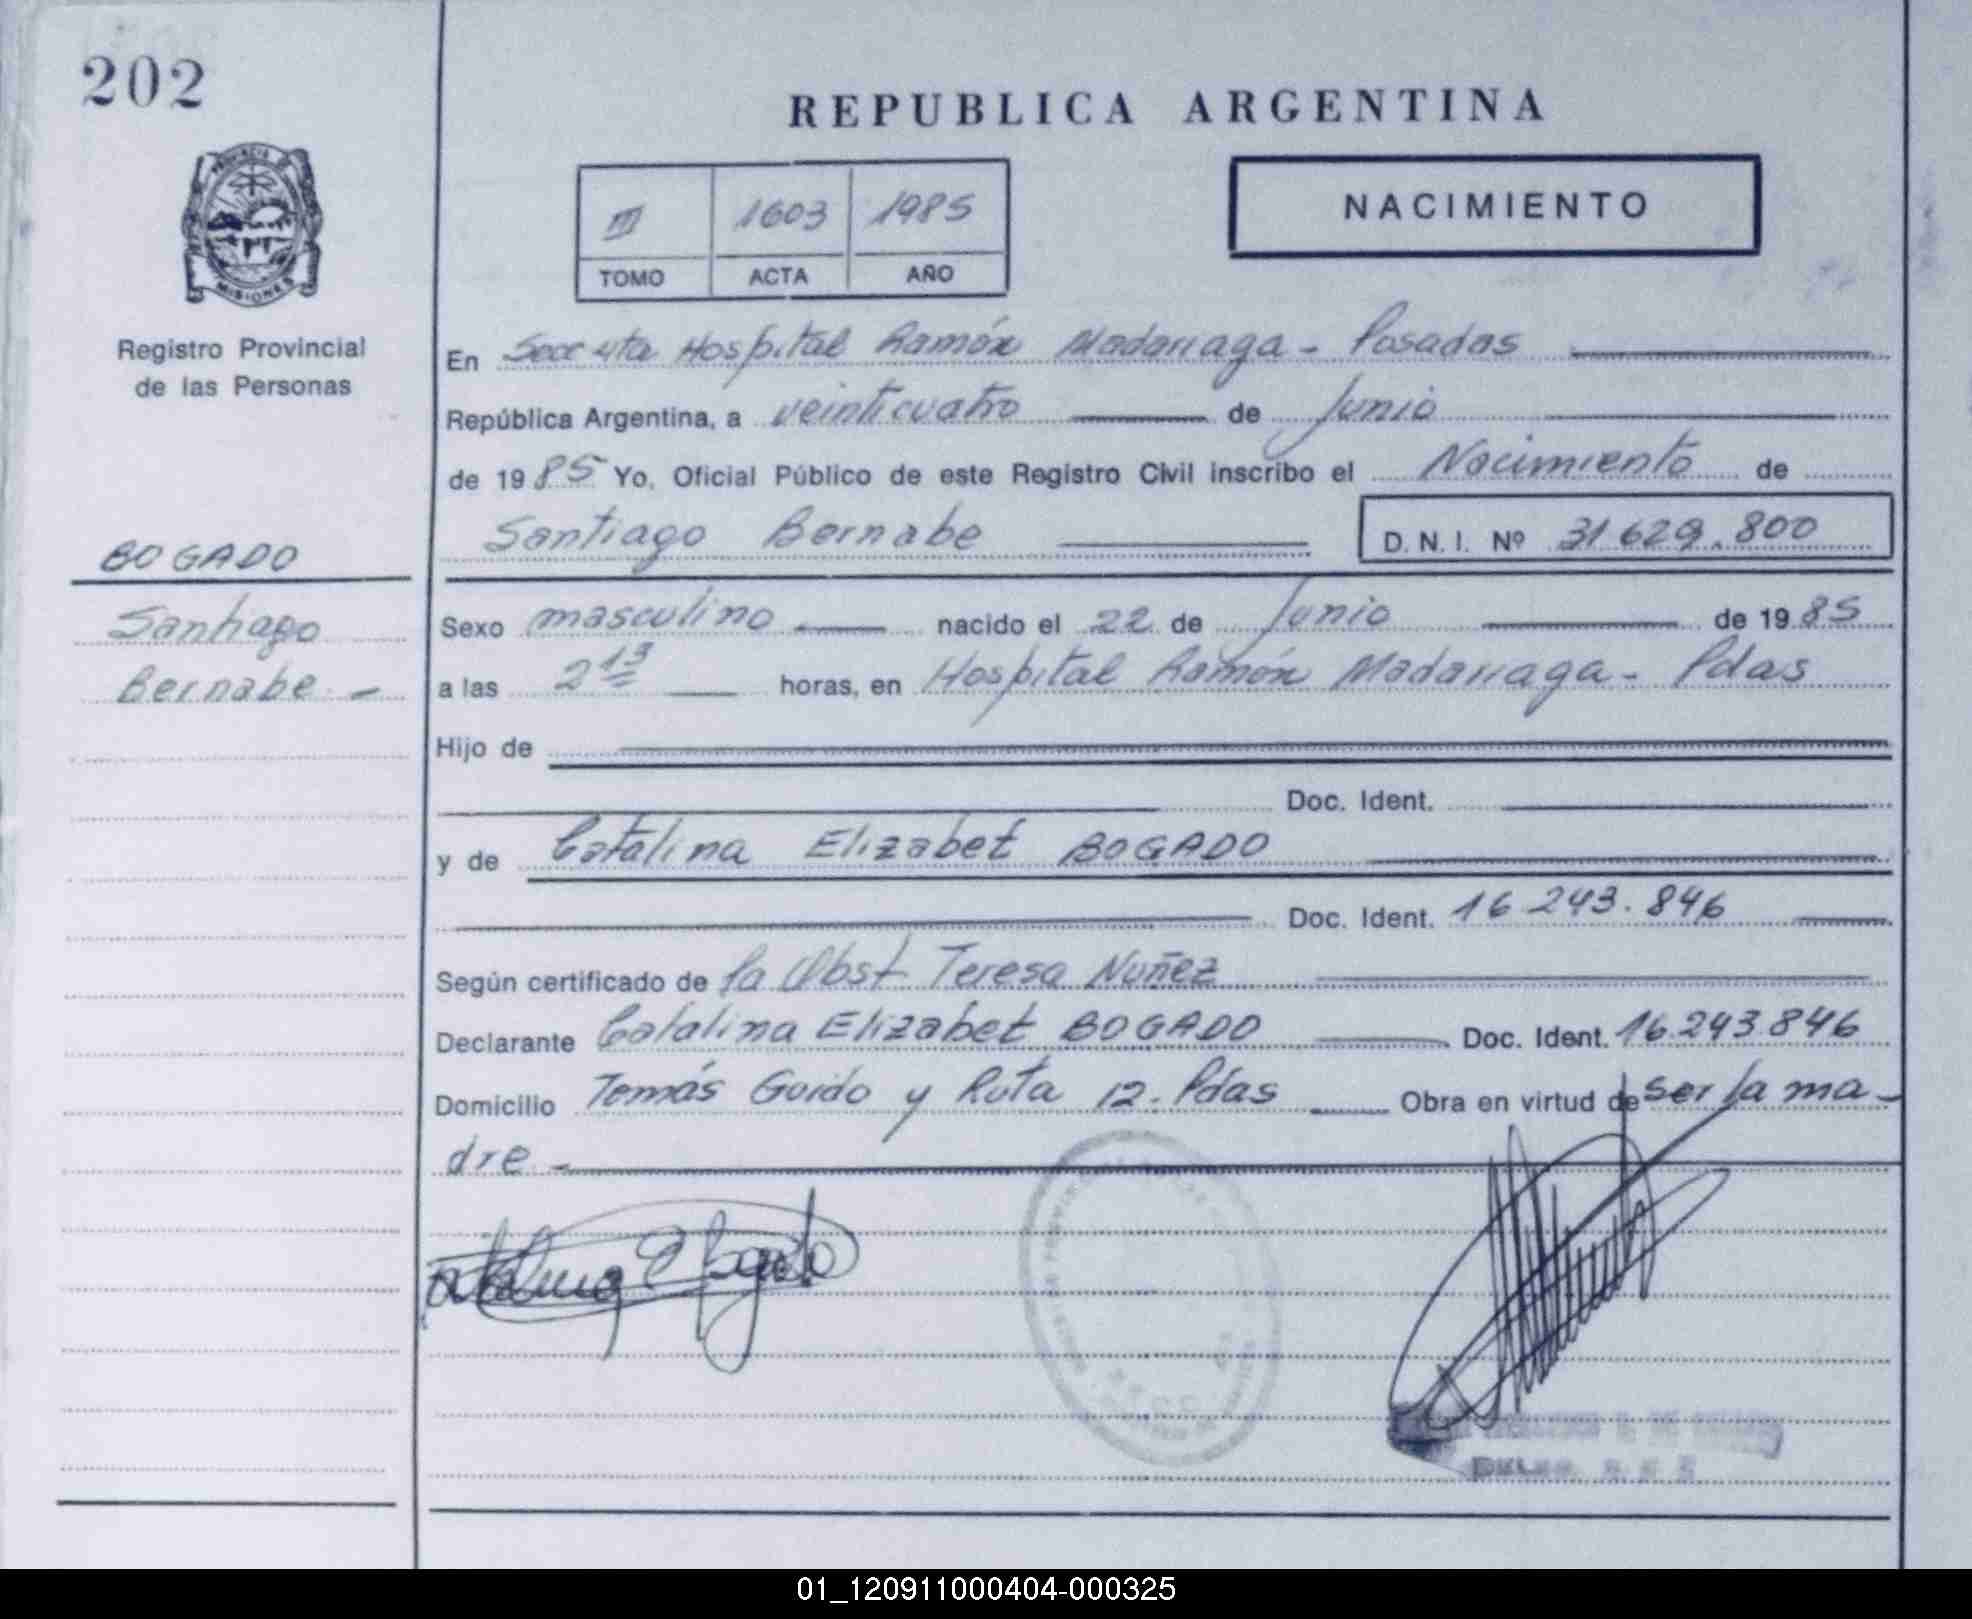 202
PROVINCIA DE
MISIONES
Registro Provincial
de las Personas
BOGADO
Santiago
Bernabe -
REPUBLICA ARGENTINA
III 1603 1985
TOMO ACTA AÑO
NACIMIENTO
En Secc 4ta Hospital Ramón Madariaga - Posadas
República Argentina, a veinticuatro de Junio
de 1985 Yo, Oficial Público de este Registro Civil inscribo el Nacimiento de
Santiago Bernabe D. N. I. Nº 31629.800
Sexo masculino nacido el 22 de Junio de 1985
a las 2 13 horas, en Hospital Ramón Madariaga - Pdas
Hijo de
Doc. Ident.
y de Catalina Elizabet BOGADO
Doc. Ident. 16 243.846
Según certificado de la Obst Teresa Nuñez
Declarante Catalina Elizabet BOGADO Doc. Ident. 16.243.846
Domicilio Tomás Guido y Ruta 12. Pdas Obra en virtud de ser la ma-
dre -
01_120911000404-000325